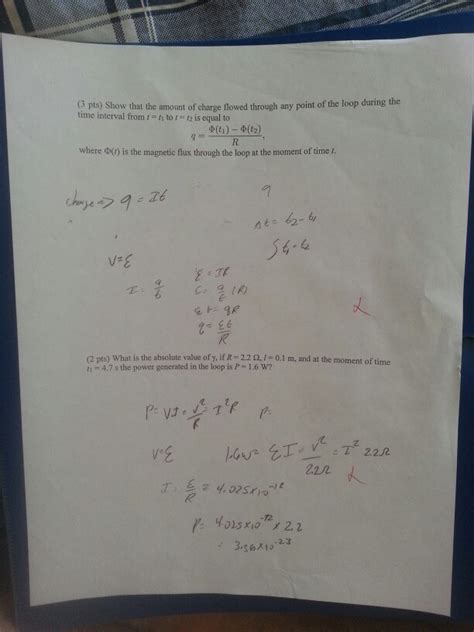 (3 pts) Show that the amount of charge flowed through any point of the loop during the
time interval from t = t₁ to t = t₂ is equal to
q = Φ(t₁) − Φ(t₂) / R,
where Φ(t) is the magnetic flux through the loop at the moment of time t.
q
charge => q = It
Δt = t₂-t₁
V=ε
ε = IR
q = εt / R
(2 pts) What is the absolute value of γ, if R = 2.2 Ω, l = 0.1 m, and at the moment of time
t₁ = 4.7 s the power generated in the loop is P = 1.6 W?
P= VI = V²/R = I²R P=
V=ε 1.6W= εI = V²/2.2Ω = I² 2.2Ω
I = ε/R = 4.025x10⁻¹²
P= 4.025x10⁻¹² x 2.2